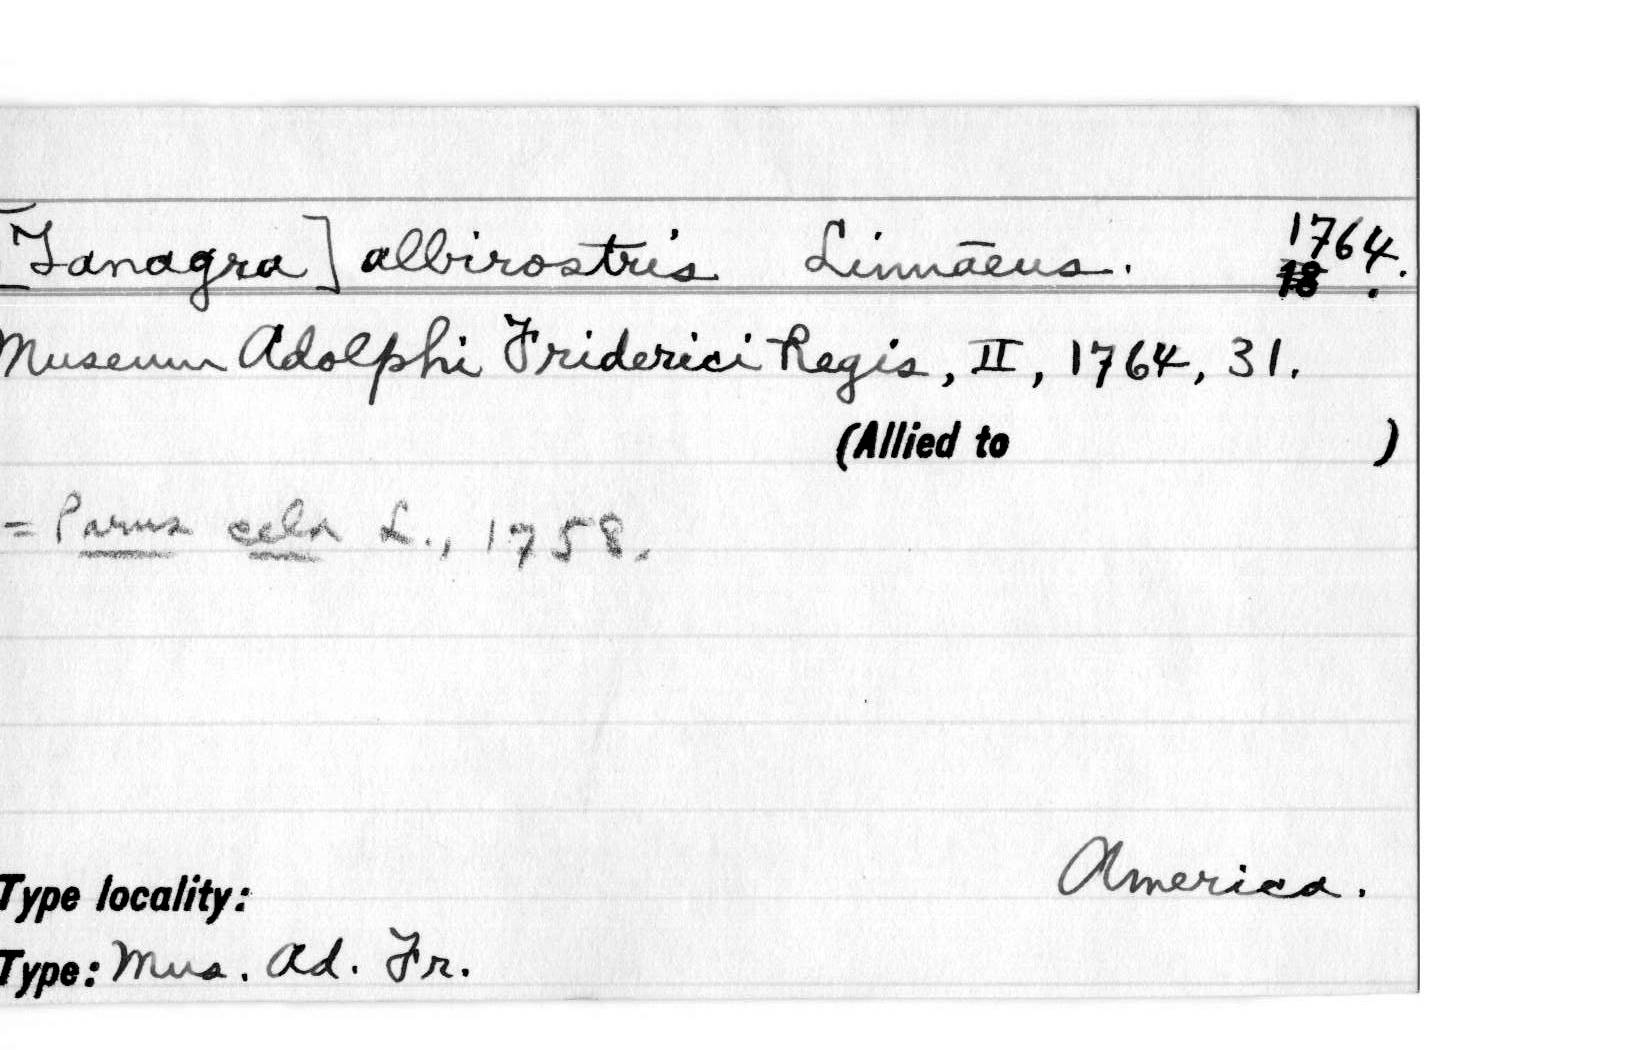 [Tanagra] albirostris Linnāeus. 1764.
18 .
Museum Adolphi Friderici Regis, II, 1764, 31.
(Allied to )
= Parus cela L., 1758.
America.
Type locality:
Type: Mus. Ad. Fr.